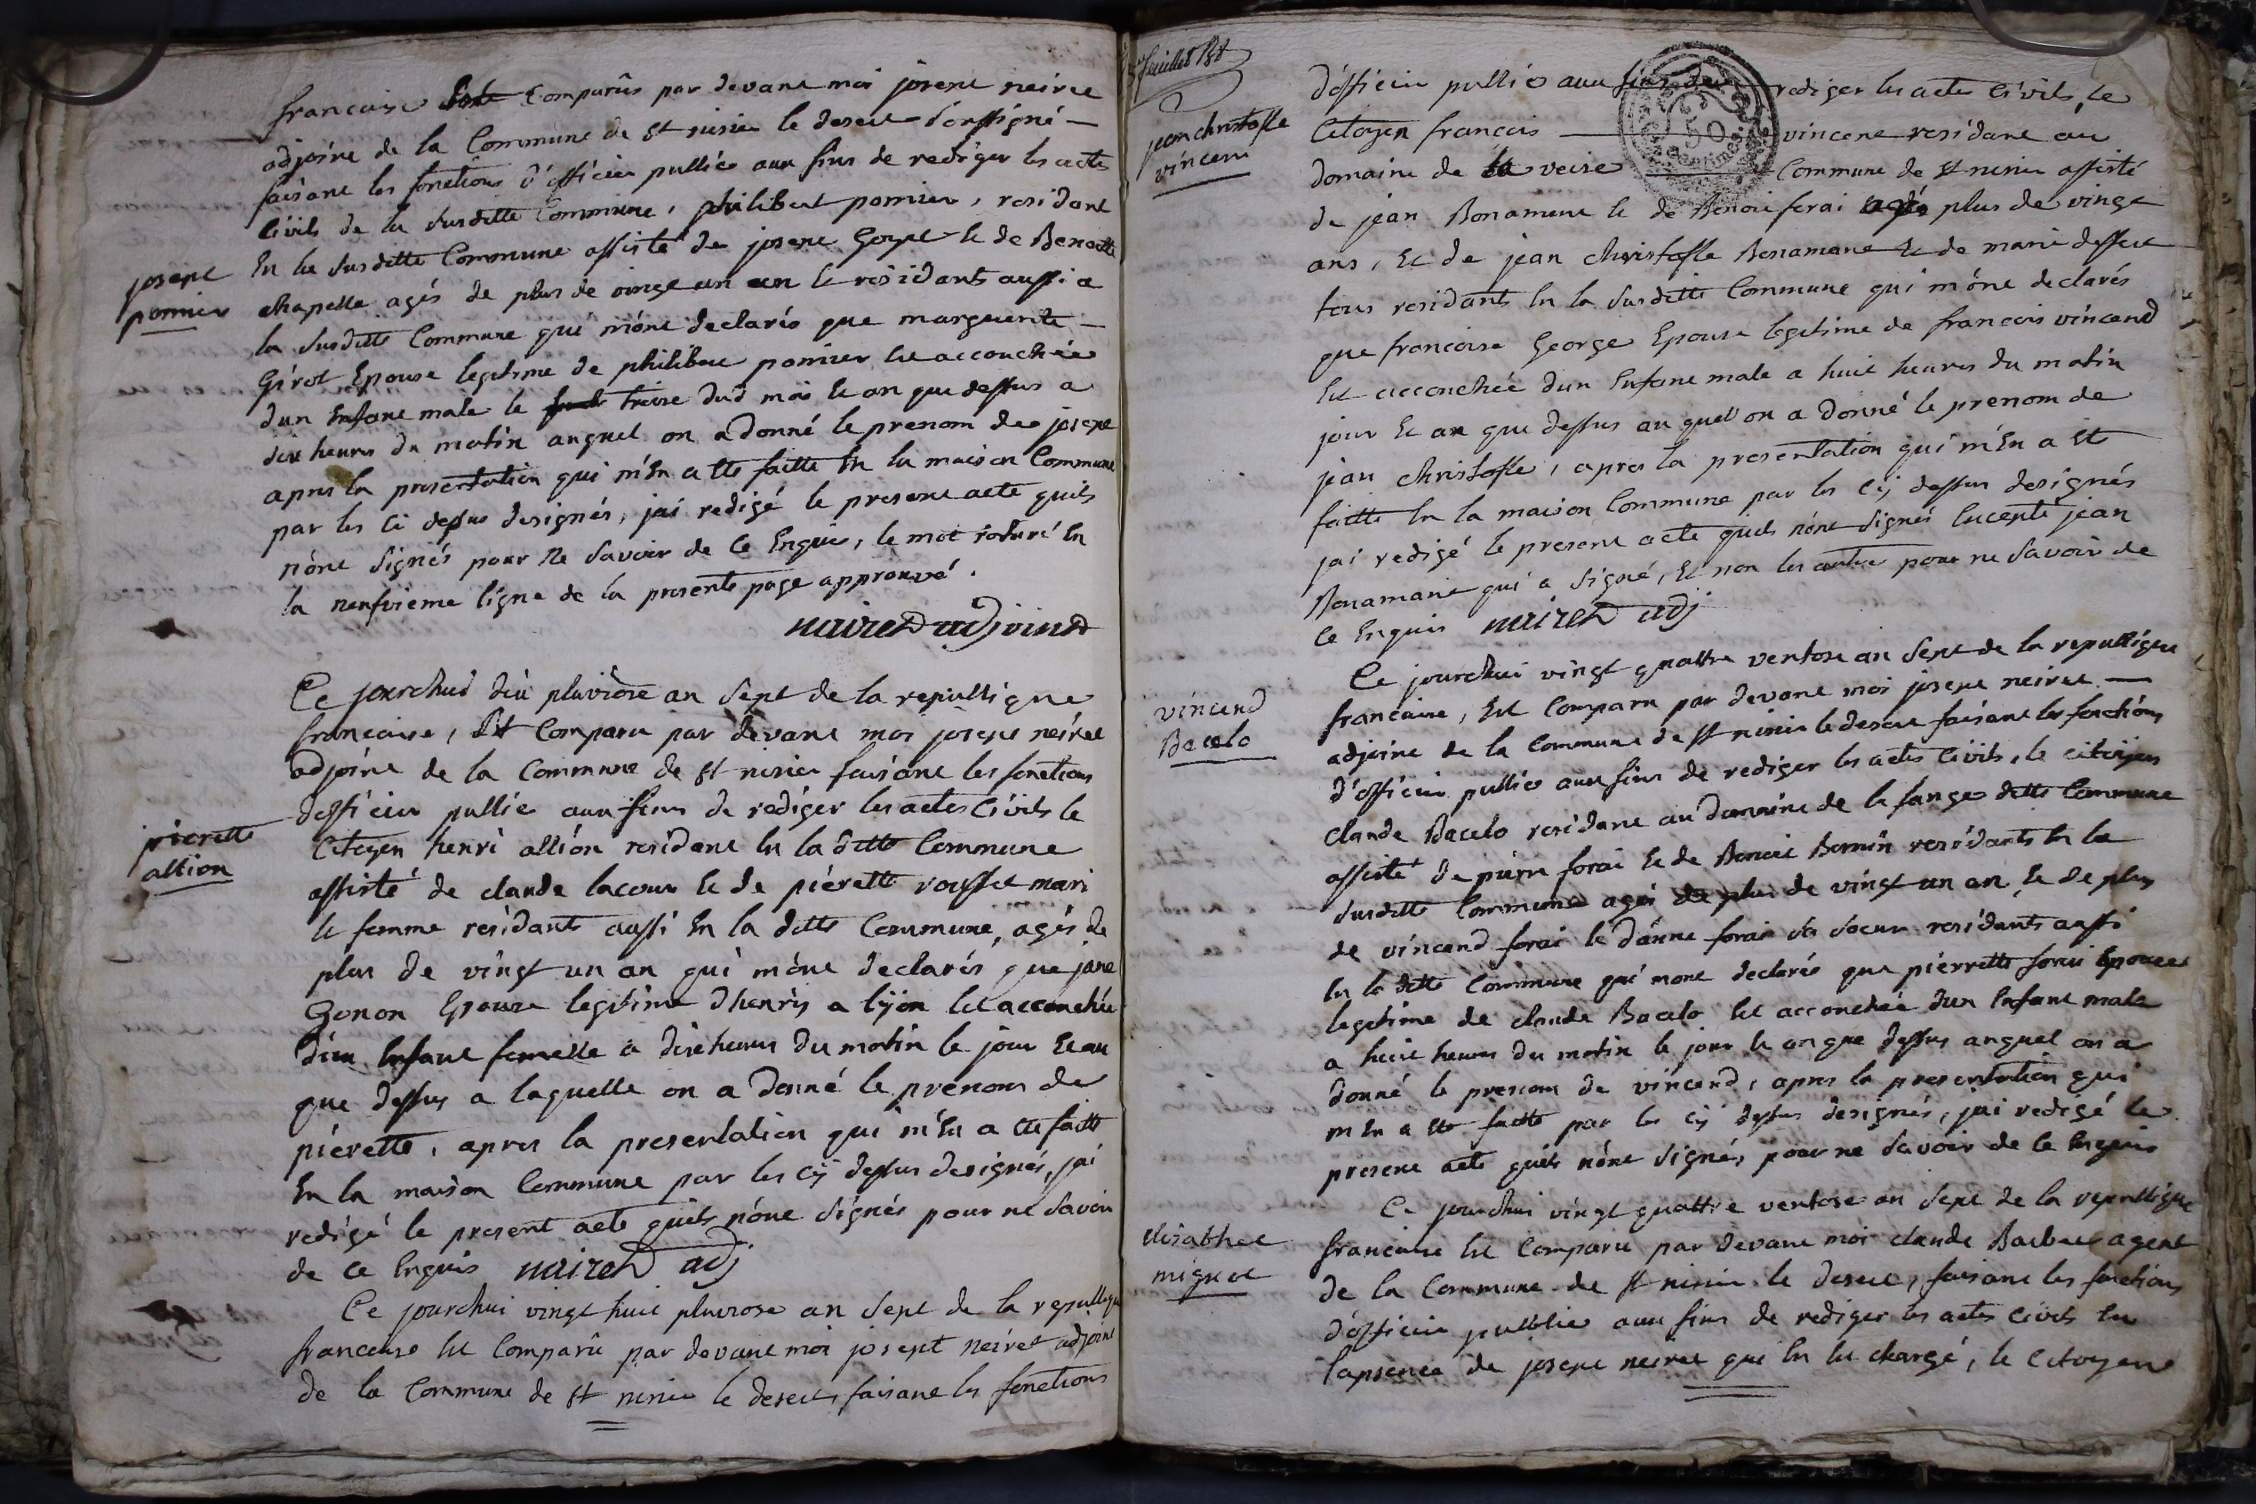 francaise Comparûs par devant moi josept neiret
adjoint de la Commune de St nisier le desert soussigné
faisant les fonctions d'officier pullic aux fins de rediger les acte
Civils de la susditte Commune, philibert pomier, residant
En la susditte Commune assisté de josept Et de Benoitte
josept
pomier
chapelle agés de plus de vingt un an Et residants aussi a
la susditte Commune qui m'ont declarés que marguerite
Girot Epouse legitime de philibert pomier Est accouchée
d'un Enfant male le treise dud mois Et an que dessus a
dix heures du matin auquel on a donné le prenom de josept
apres la presentation qui m'En a Eté faitte En la maison Commune
par les Ci dessus designés, jai redigé le present acte quils
n'ont signés pour ne savoir de Ce Enquis, le mot raturé En
la neufvieme ligne de la presente page approuvé.
neiret adjoint
Ce jourdhui dix pluviose an sept de la republique
francaise, Est Comparu par devant moi josept neiret
adjoint de la Commune de St nisier faisant les fonctions
dofficier pullic aux fins de rediger les actes Civils le
pierette
allion
Citoyen henri allion residant En la ditte Commune
assisté de claude lacour Et de pierette rousset mari
Et femme residants aussi En la ditte Commune, agés de
plus de vingt un an qui m'ont declarés que jane
Gonon Epouse legitime d'henry a lyon Est accouchée
d'un Enfant femelle a dix heures du matin le jour Et an
que dessus a laquelle on a donné le prenom de
pierette, apres la presentation qui m'En a Eté faitte
En la maison Commune par les Cy dessus designés, jai
redigé le present acte quils n'ont signés pour ne savoir
de Ce Enquis neiret adj
Ce jourdhui vingt huit pluviose an sept de la republique
francaise Est Comparû par devant moi josept neiret adjoint
de la Commune de St nisier le desert, faisant les fonctions
feuillet
jean christofle
vincent
d'officier pullic aux fins de rediger les acte Civils, le
Citoyen francois vincent residant au
domaine de veise Commune de St nisier assisté
de jean Bonament Et de Benoit ferai agés plus de vingt
ans, Et de jean christofle Bonament Et de marie
tous residants En la susditte Commune qui m'ont declarés
que francoise George Epouse legitime de francois vincend
Est accouchée d'un Enfant male a huit heures du matin
jour Et an que dessus au quel on a donné le prenom de
jean christofle, apres la presentation qui m'En a Eté
faitte En la maison Commune par les Cy dessus designés
jai redigé le present acte quils n'ont signés Excepté jean
Bonamant qui a signé, Et non les autre pour ne savoir de
Ce Enquis neiret adj
Ce jourdhui vingt quattre ventose an sept de la republique
vincend
Bacelo
francaise, Est Comparu par devant moi josept neiret
adjoint de la Commune de St nisier le desert faisant les fonctions
d'officier pullic aux fins de rediger les actes Civils, le citoyen
claude Bacelo residant au domaine de la fange ditte Commune
assisté de pierre forai Et de Benoit Bonin residants En la
susditte Commune agés de plus de vingt un an, Et de plus
de vincend forai Et d'anne forai sa soeur residants aussi
En la ditte Commune qui mont declarés que pierrette forai Epouse
legitime de claude Bacelo Est accouchée d'un Enfant male
a huit heures du matin le jour Et an que dessus auquel on a
donné le prenom de vincend, apres la presentation qui
m'En a Eté faitte par les Cy dessus designés, jai redigé le
present acte quils n'ont signés pour ne savoir de Ce Enquis
Ce jourdhui vingt quattre ventose an sept de la republique
Elisabhet
mignot
francaise Est Comparu par devant moi claude Barbet agent
de la Commune de St nisier le desert, faisant les fonctions
d'officier publlic aux fins de rediger les acts Civils En
l'apsence de josept neiret qui En Est chargé, le Citoyen